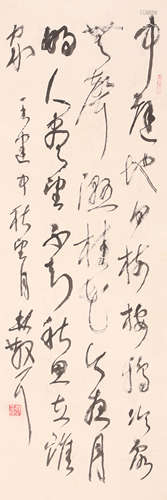 中庭地白树栖鸦冷露
无声湿桂花今夜月
明人尽望不知秋思在谁
家 王建中秋望月 林散之